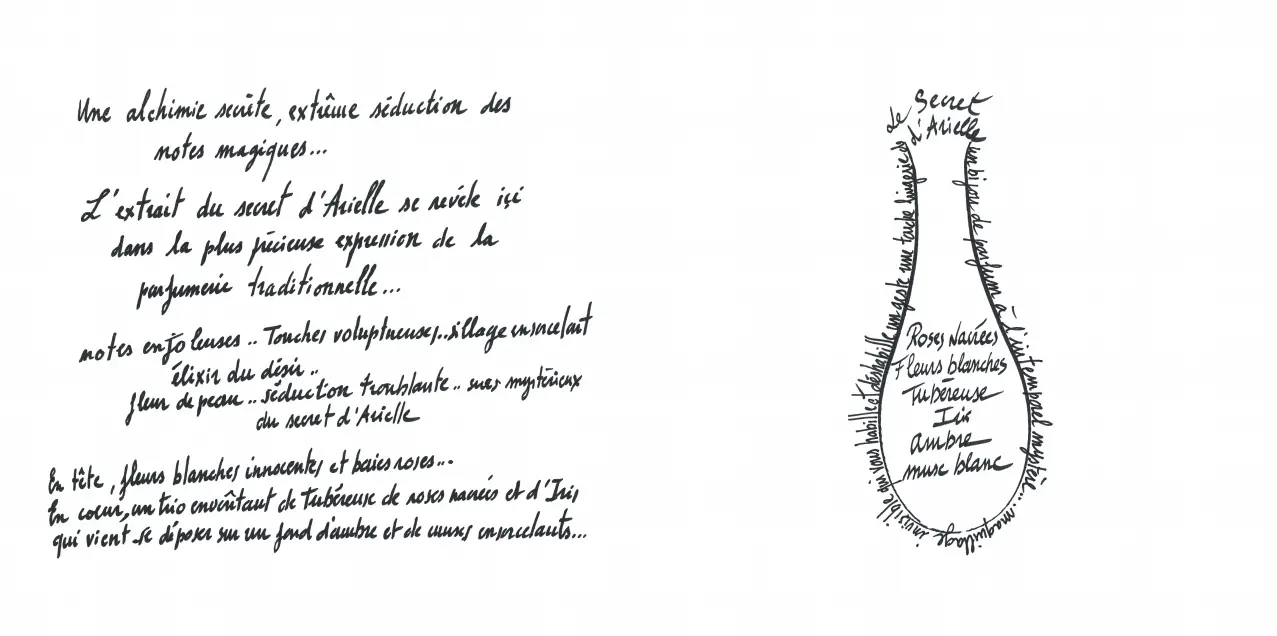 Une alchimie secrète, extrême séduction des
notes magiques...
L'extrait du secret d'Arielle se révèle içi
dans la plus précieuse expression de la
parfumerie traditionnelle...
notes enjôleuses .. Touches voluptueuses...sillage ensorcelant
élixir du désir ..
fleur de peau .. séduction troublante .. sucs mystérieux
du secret d'Arielle
En tête, fleurs blanches innocentes et baies roses...
En coeur, un trio envoûtant de Tubéreuse de roses nacrées et d'Iris
qui vient se déposer sur un fond d'ambre et de muscs ensorcelants...
Le Secret
d'Arielle
un bijou de parfum à l'intemporel mystère... maquillage invisible qui vous habille et déshabille un geste une touche lingerie de
Roses Nacrées
Fleurs blanches
Tubéreuse
Iris
ambre
musc blanc